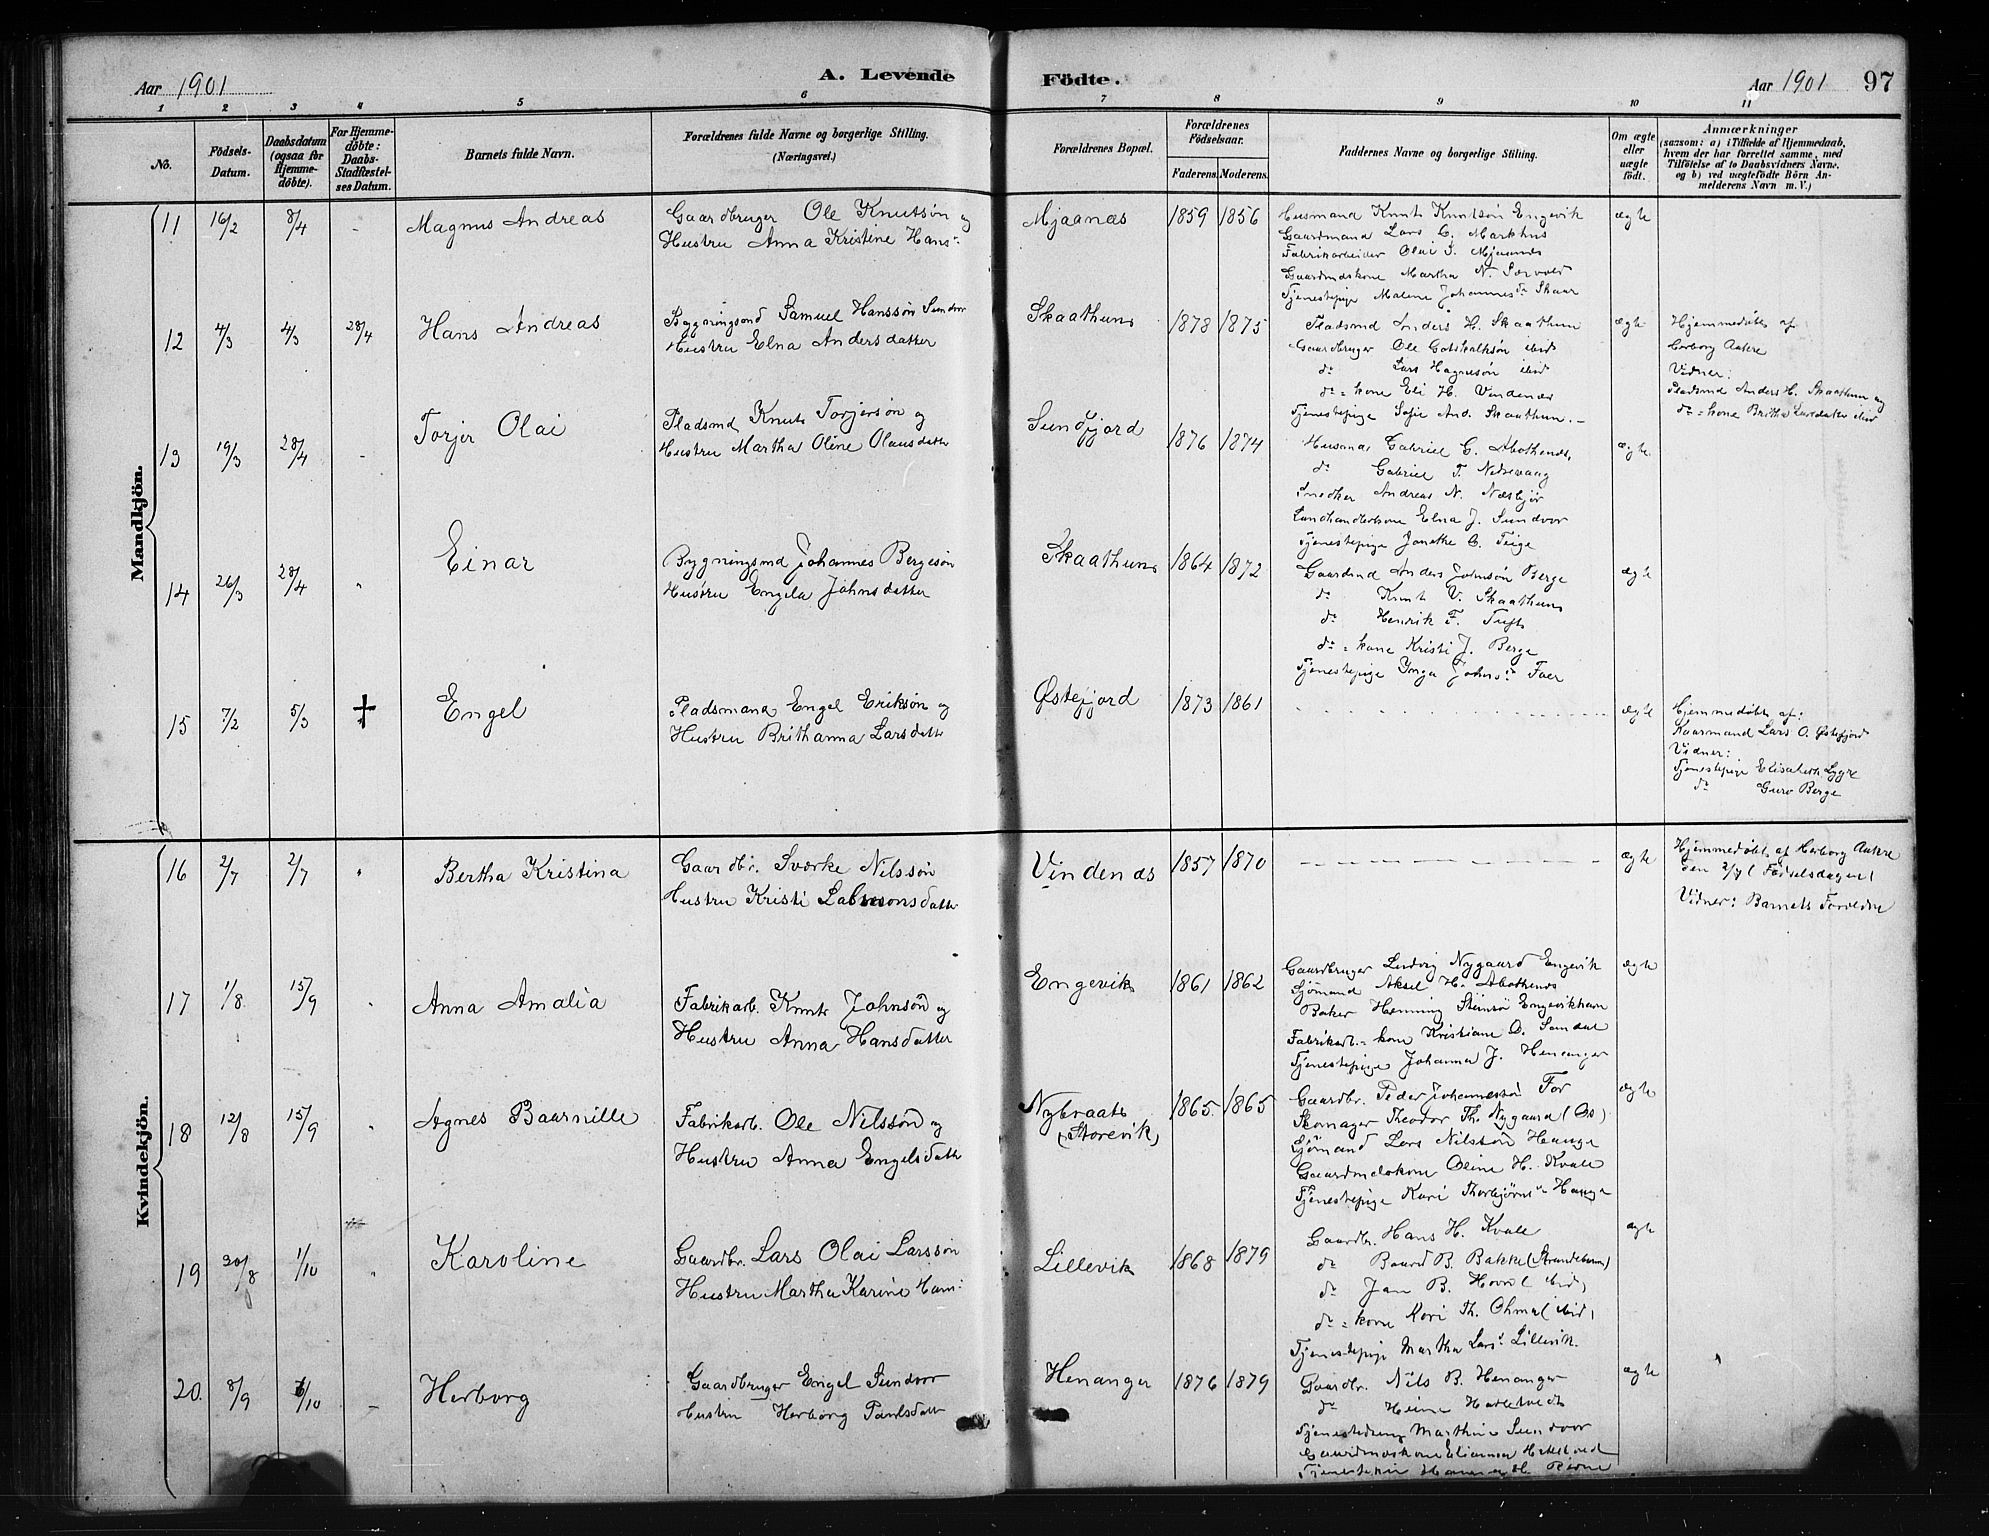 Aar 1901
A. Levende
Födte.
Aar 1901 97
1 2 3 4 5 6 7 8 9 10 11
Nö.
Födsels-Datum.
Daabsdatum (ogsaa for Hjemme-döbte).
For Hjemme-döbte: Daabs-Stadfæstel-ses Datum.
Barnets fulde Navn.
Forældrenes fulde Navne og borgerlige Stilling.
(Næringsvei.)
Forældrenes Bopæl.
Forældrenes Födselsaar.
Faderens. Moderens.
Faddernes Navne og borgerlige Stilling.
Om ægte eller uægte födt.
Anmærkninger
(saasom: a) i Tilfælde af Hjemmedaab,
hvem der har forrettet samme, med
Tilföielse af to Daabsvidners Navne.
og b) ved uægtefödte Börn An-
melderens Navn m. V.)
Mandkjön.
11 16/2 8/4 - Magnus Andreas
Gaardbruger Ole Knutsön og
Hustru Anna Kristine Hans-
Mjaanæs 1859 1856
Husmand Knut Knutsön Engevik
Gaardmand Lars C. Markhus
Fabrikarbeider Olai J. Mjaanæs
Gaardmdskone Martha N. Sævold
Tjenestepige Malene Johannesdr Skaar
ægte
12 4/3 4/3 28/4 Hans Andreas
Bygningsmd Samuel Hanssön Sundvor
Hustru Elna Andersdatter
Skaathun 1878 1875
Pladsmd Anders H. Skaathun
Gaardbruger Ole Gotskalksön ibid
do Lars Hagnesön ibid
do = kone Eli H. Vindenæs
Tjenestepige Sofie And. Skaathun. -
ægte
Hjemmedöbt af
Herborg Aakre
Vidner:
Pladsmd Anders H. Skaathun og
do = kone Britha Larsdatter ibid
13 19/3 28/4 - Torjer Olai
Pladsmd Knut Torjersön og
Hustru Martha Oline Olausdatter
Sundfjord 1876 1874
Husmd Gabriel G. Abothsnæs
do Gabriel T. Nedrevaag
Snedker Andreas N. Næsbjör
Landhandlerkone Elna J. Sundvor
Tjenestepige Janikke C. Teige
ægte
14 26/3 28/4 " Einar
Bygningsmd Johannes Bergesön
Hustru Engela Johnsdatter
Skaathun 1864 1872
Gaardmd Anders Johnsön Berge
do Knut V. Skaathun
do Henrik F. Tuft
do = kone Kristi J. Berge
Tjenestepige Inga Johnsdr Faer
ægte
15 7/2 5/3 † Engel
Pladsmand Engel Eriksön og
Hustru Brithanna Larsdatter
Østefjord 1873 1861
ægte
Hjemmedöbt af:
Kaarmand Lars O. Østefjord
Vidner:
Tjenestepige Elisabeth Lygre
do Guro Berge
Kvindekjön.
16 2/7 2/7 " Bertha Kristina
Gaardbr. Sværke Nilssön
Hustru Kristi Salmonsdatter
Vindenæs 1857 1870
ægte
Hjemmedöbt af Herborg Aakre
den 2/7 (Födselsdagen)
Vidner: Barnets Forældre
17 1/8 15/9 Anna Amalia
Fabrikarb. Knut Johnsön og
Hustru Anna Hansdatter
Engevik 1861 1862
Gaardbruger Ludvig Nygaard Engevik
Sjömand Aksel H. Abothsnæs
Baker Henning Steinsö Engevikhavn
Fabrikarb.- kone Kristiane O. Sandal
Tjenestepige Johanna J. Henanger
ægte
18 12/8 15/9 " Agnes Baarnille
Fabrikarb. Ole Nilssön og
Hustru Anna Engelsdatter
Nybraate
(Storevik)
1865. 1865
Gaardbr. Peder Johannessön For
Skomager Theodor Th. Nygaard (Os)
Sjömand Lars Nilssön Hauge
Gaardmdskone Oline H. Kvale
Tjenestepige Kari Thorbjörnsdr Hauge
ægte
19 30/8 1/10 " Karoline
Gaardbr. Lars Olai Larssön
Hustru Martha Karine Hans-
Lillevik 1868 1879
Gaardbr. Hans H. Kvale
do Baard B. Bakke (Strandebarm)
do Jan B. Hovel (ibid)
do = kone Kari Th. Ohma (ibid)
Tjenestepige Martha Larsdr Lillevik.
ægte
20. 8/9 6/10 - Herborg
Gaardbruger Engel Sundvor
Hustru Herborg Paulsdatter
Henanger 1876 1879
Gaardbr. Nils B. Henanger
do Heine Hatletvedt
Tjenestedreng Marthin Sundvor
Gaardmdskone Elianna Hatletvedt
Tjenestepige
ægte